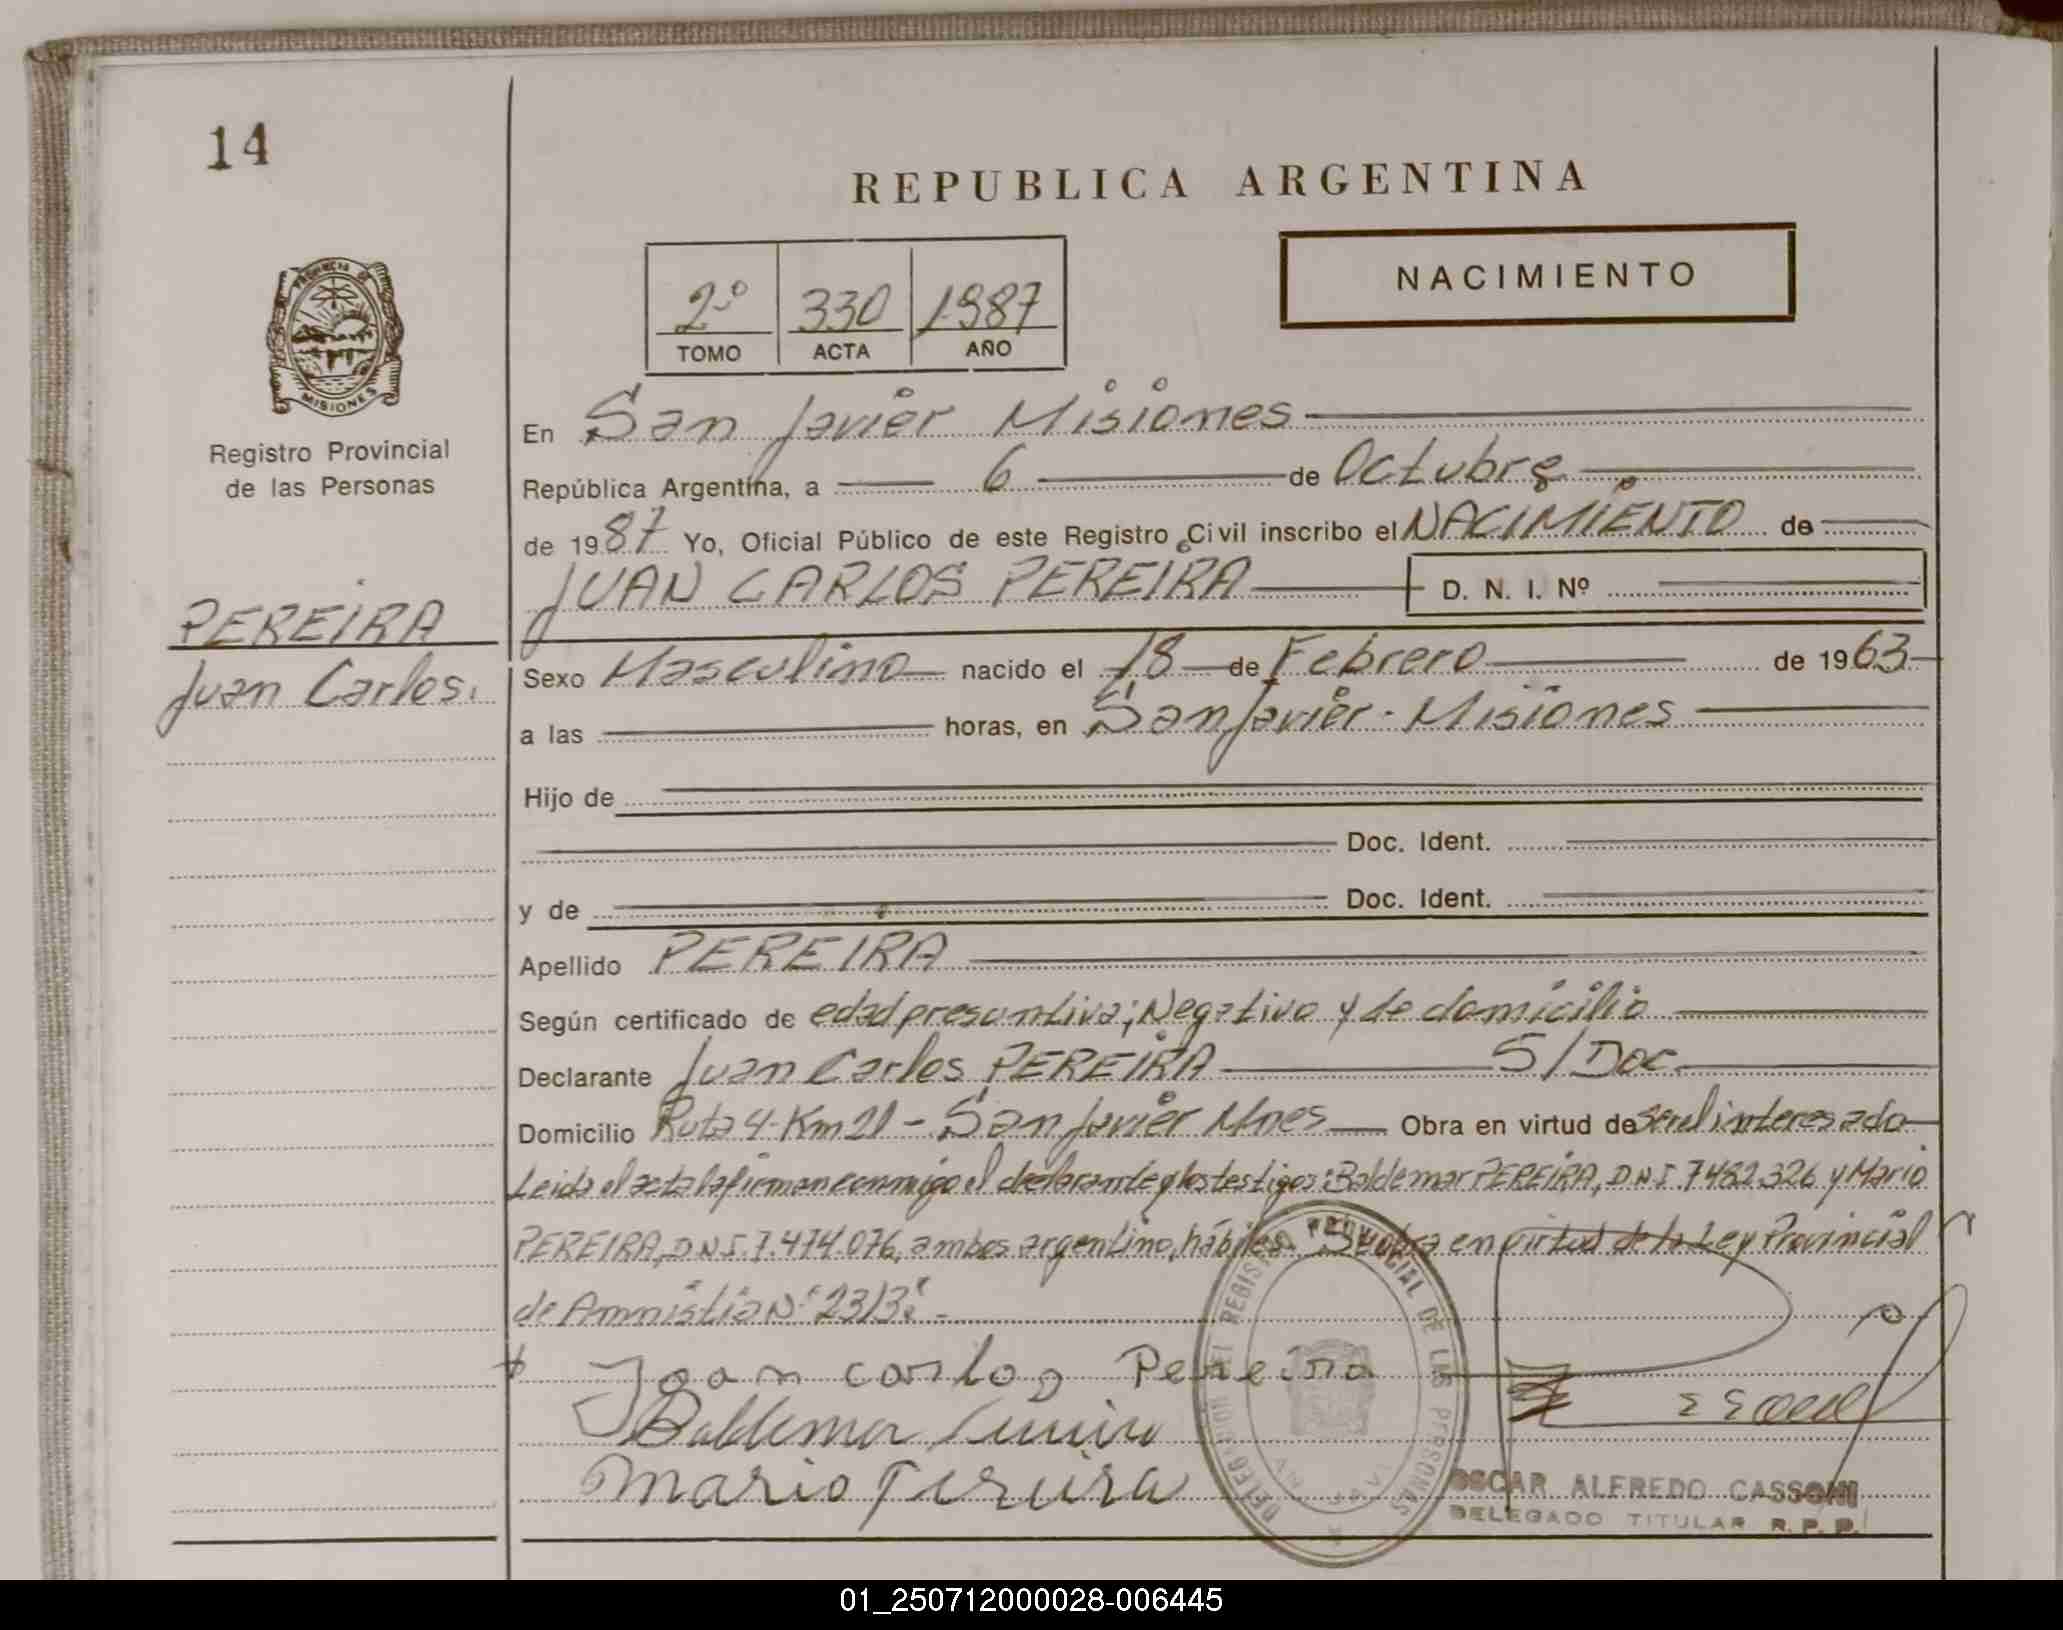 14
REPUBLICA ARGENTINA
NACIMIENTO
2º 330 1987
TOMO ACTA AÑO
PROVINCIA DE MISIONES
Registro Provincial
de las Personas
En San Javier Misiones
República Argentina, a 6 de Octubre
de 1987 Yo, Oficial Público de este Registro Civil inscribo el NACIMIENTO de
JUAN CARLOS PEREIRA D. N. I. Nº
PEREIRA
Juan Carlos.
Sexo Masculino nacido el 18 de Febrero de 1963
a las horas, en San Javier - Misiones
Hijo de
Doc. Ident.
y de Doc. Ident.
Apellido PEREIRA
Según certificado de edad presuntiva; Negativo y de domicilio
Declarante Juan Carlos PEREIRA S/Doc.
Domicilio Ruta 4 - Km 21 - San Javier Mnes Obra en virtud de ser el interesado
Leida el acta la firman conmigo el declarante y los testigos: Baldemar PEREIRA, DNI. 7482.326 y Mario
PEREIRA, DNI. 7.474.076, ambos argentino, hábiles. Se obra en virtud de la Ley Provincial
de Amnistia Nº
Juan carlos Pereira
Baldemar Pereira
Mario Pereira
DELEGACION DEL REGISTRO PROVINCIAL DE LAS PERSONAS
OSCAR ALFREDO CASSONI
DELEGADO TITULAR R. P. P.
01_250712000028-006445